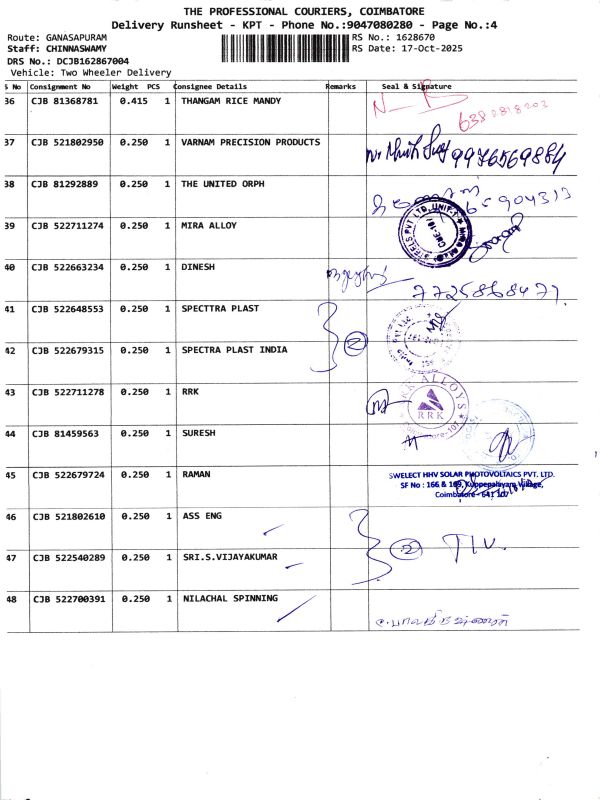 THE PROFESSIONAL COURIERS, COIMBATORE
Delivery Runsheet - KPT - Phone No.:9047080280 - Page No.:4
Route: GANASAPURAM
RS No.: 1628670
Staff: CHINNASWAMY
RS Date: 17-Oct-2025
DRS No.: DCJB162867004
Vehicle: Two Wheeler Delivery
S No Consignment No Weight PCS Consignee Details Remarks Seal & Signature
36 CJB 81368781 0.415 1 THANGAM RICE MANDY
37 CJB 521802950 0.250 1 VARNAM PRECISION PRODUCTS 9976569884
38 CJB 81292889 0.250 1 THE UNITED ORPH
39 CJB 522711274 0.250 1 MIRA ALLOY
40 CJB 522663234 0.250 1 DINESH 7725868471
41 CJB 522648553 0.250 1 SPECTTRA PLAST
42 CJB 522679315 0.250 1 SPECTRA PLAST INDIA 2
43 CJB 522711278 0.250 1 RRK RRK ALLOYS RRK
44 CJB 81459563 0.250 1 SURESH
45 CJB 522679724 0.250 1 RAMAN
SWELECT HHV SOLAR PHOTOVOLTAICS PVT. LTD.
SF No : 166 & 169, Kuppepalayam Village,
Coimbatore - 641 107
46 CJB 521802610 0.250 1 ASS ENG
47 CJB 522540289 0.250 1 SRI.S.VIJAYAKUMAR 2 TIV.
48 CJB 522700391 0.250 1 NILACHAL SPINNING